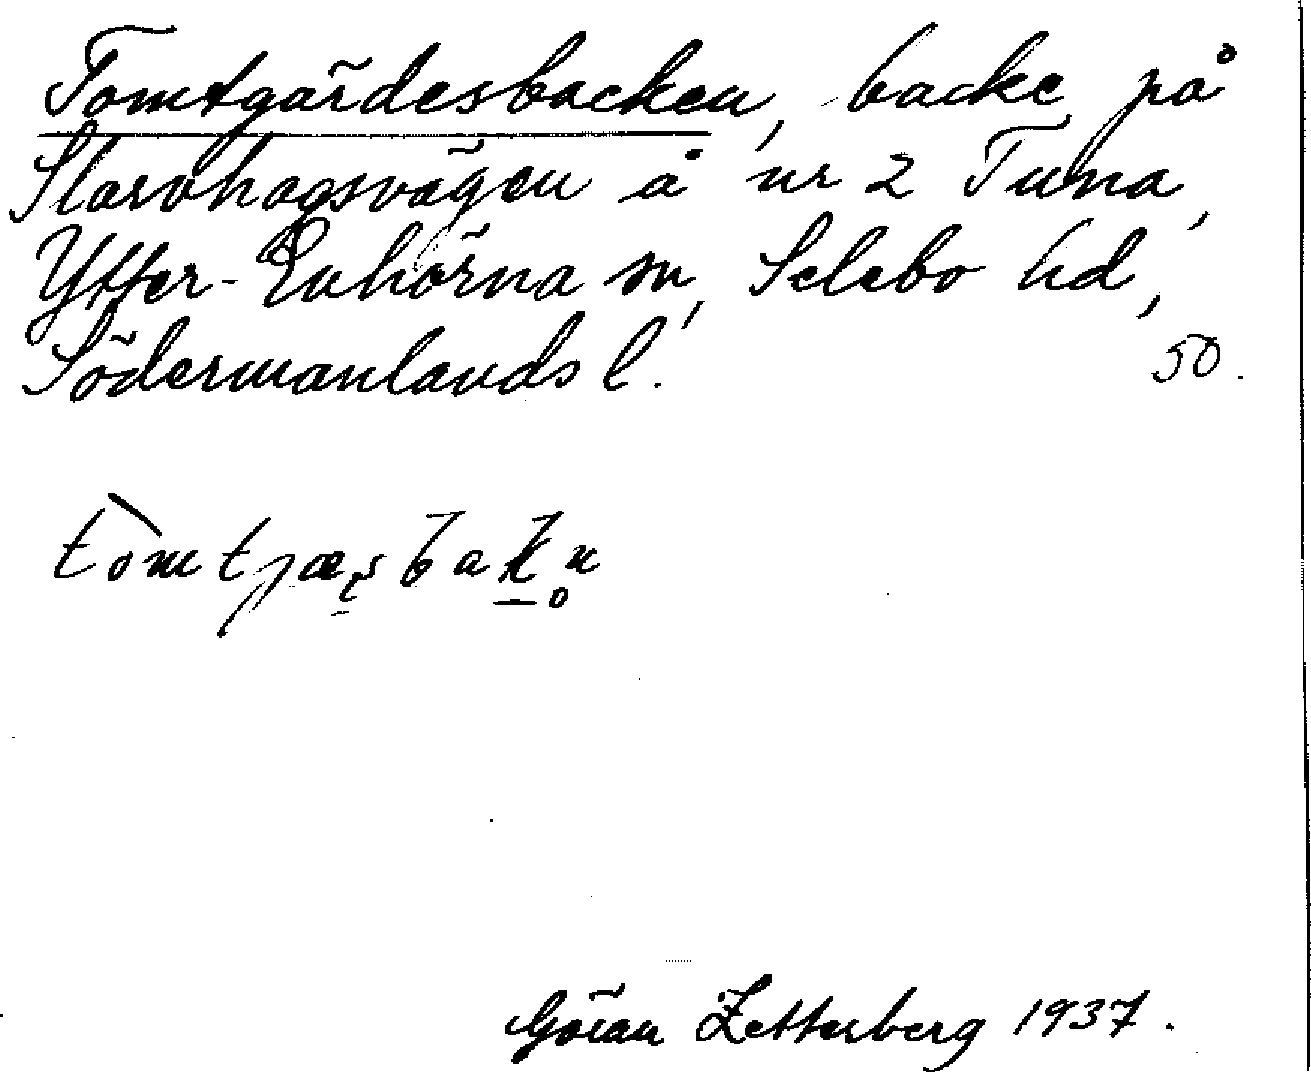 Tomtgärdesbacken, backe på
Slarvhagsvägen å nr 2 Tuna,
Ytter-Enhörna sn, Selebo hd,
Södermanlands l.
50.
Göran Zetterberg 1937.